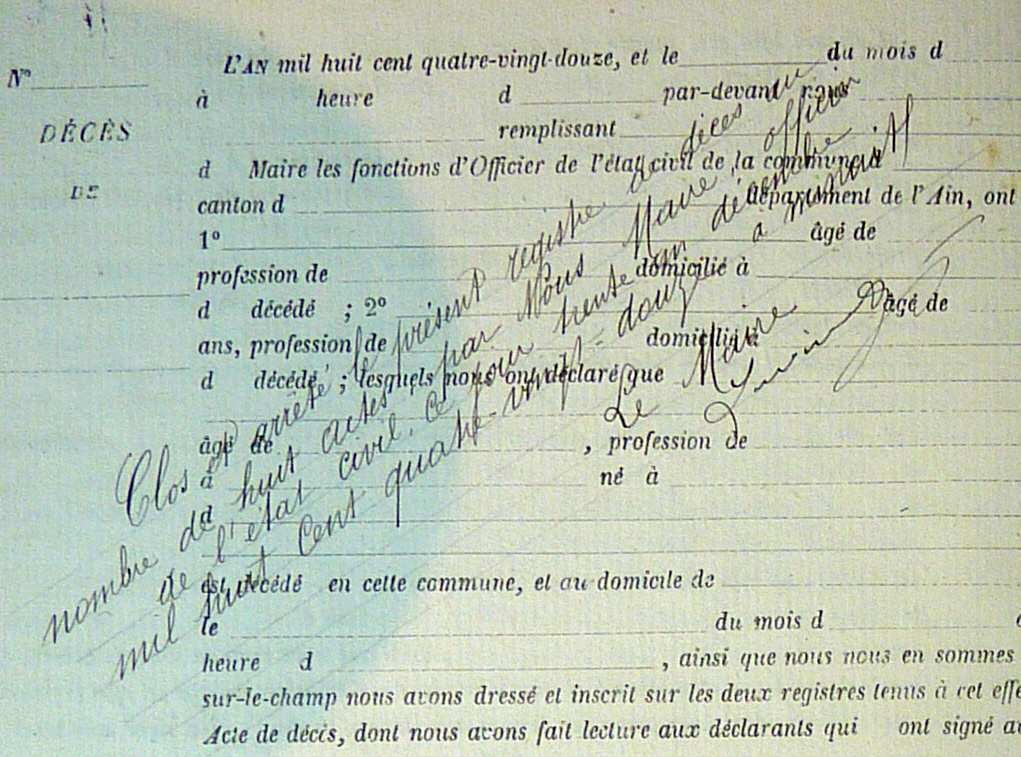 L'AN mil huit cent quatre-vingt-douze, et le du mois d
N°
à heure d par-devant nous
DÉCÈS
remplissant
d Maire les fonctions d'Officier de l'état civil de la commune d
DE
canton d département de l'Ain, ont
1° âgé de
profession de domicilié à
d décédé ; 2° âgé de
ans, profession de domicilié à
d décédé ; lesquels nous ont déclaré que
âgé de , profession de
à né à
d
est décédé en cette commune, et au domicile de
le du mois d
heure d , ainsi que nous nous en sommes
sur-le-champ nous avons dressé et inscrit sur les deux registres tenus à cet effe
Acte de décès, dont nous avons fait lecture aux déclarants qui ont signé av
Clos et arrêté le présent registre de décès au
nombre de huit actes par Nous Maire, officier
de l'état civil, ce jour trente un décembre
mil huit cent quatre-vingt-douze à minuit
Le Maire